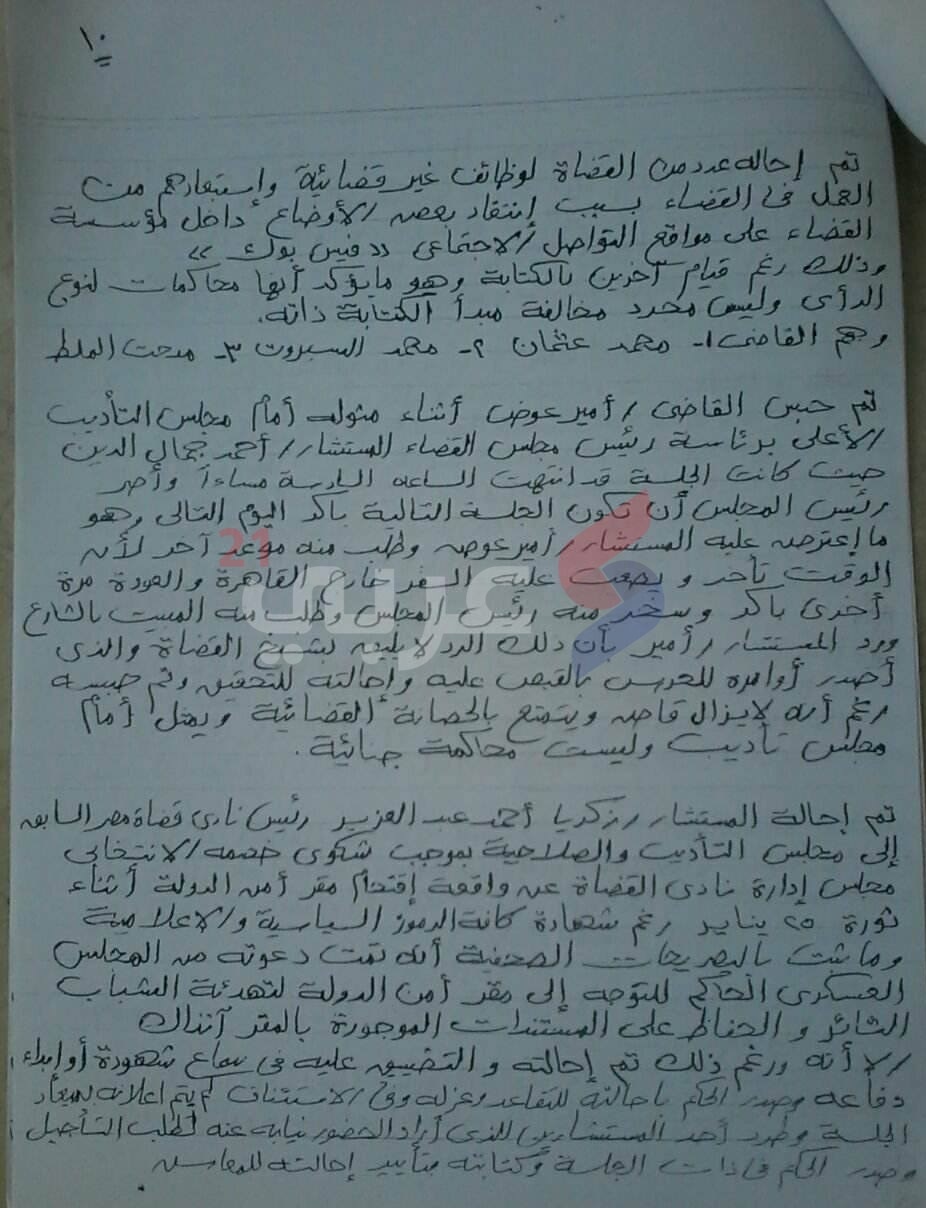 ١٠
تم إحالة عدد من القضاة لوظائف غير قضائية وإستبعادهم من
العمل فى القضاء بسبب إنتقاد بعض الأوضاع داخل مؤسسة
القضاء على مواقع التواصل الاجتماعى «فيس بوك»
وذلك رغم قيام آخرين بالكتابة وهو مايؤكد أنها محاكمات لنوع
الرأى وليس مجرد مخالفة مبدأ الكتابة ذاته.
وهم القاضى ١- محمد عثمان ٢- محمد السبروت ٣- مدحت الملط
تم حبس القاضى / أمير عوض أثناء مثوله أمام مجلس التأديب
الأعلى برئاسة رئيس مجلس القضاء المستشار / أحمد جمال الدين
حيث كانت الجلسة قد انتهت الساعه السادسة مساءاً وأصر
رئيس المجلس أن تكون الجلسة التالية باكر اليوم التالى وهو
ما إعترض عليه المستشار / أمير عوض وطلب منه موعد آخر لأن
الوقت تأخر ويصعب عليه السفر خارج القاهرة والعودة مرة
أخرى باكر وسخر منه رئيس المجلس وطلب منه المبيت بالشارع
ورد المستشار / أمير بأن ذلك الرد لا يليق بشيخ القضاة والذى
أصدر أوامره للحرس بالقبض عليه وإحالته للتحقيق وتم حبسه
رغم أنه لايزال قاض ويتمتع بالحصانة القضائية ويمثل أمام
مجلس تأديب وليست محاكمة جنائية.
تم إحالة المستشار / زكريا أحمد عبد العزيز رئيس نادى قضاة مصر السابق
إلى مجلس التأديب والصلاحية بموجب شكوى خصمه الانتخابى
مجلس إدارة نادى القضاة عن واقعة إقتحام مقر أمن الدولة أثناء
ثورة ٢٥ يناير رغم شهادة كافة الرموز السياسية والاعلامية
وما ثبت بالتصريحات الصحفية أنه تمت دعوته من المجلس
العسكرى الحاكم للتوجه إلى مقر أمن الدولة لتهدئة الشباب
الثائر والحفاظ على المستندات الموجودة بالمقر آنذاك
إلا أنه ورغم ذلك تم إحالته والتضييق عليه فى سماع شهوده أو إبداء
دفاعه وصدر الحكم باحالته للتقاعد وعزله وفى الاستئناف لم يتم اعلانه بميعاد
الجلسة وطرد أحد المستشارين الذى أراد الحضور نيابه عنه لطلب التأجيل
وصدر الحكم فى ذات الجلسة وكتابته بتأييد إحالته للمعاش
عربي 21